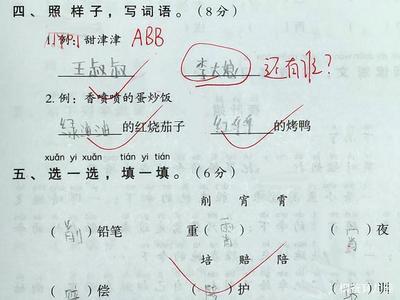 四、照样子，写词语。（8分）
1. 例：甜津津 ABB
王叔叔 李大娘 还有谁？
2. 例：香喷喷的蛋炒饭
绿油油的红烧茄子 红彤彤的烤鸭
xuǎn yi xuǎn tián yi tián
五、选一选，填一填。（6分）
削 宵 霄
（削）铅笔 重（霄） （宵）夜
培 赔 陪
（赔）偿 （陪）护 （ ）训